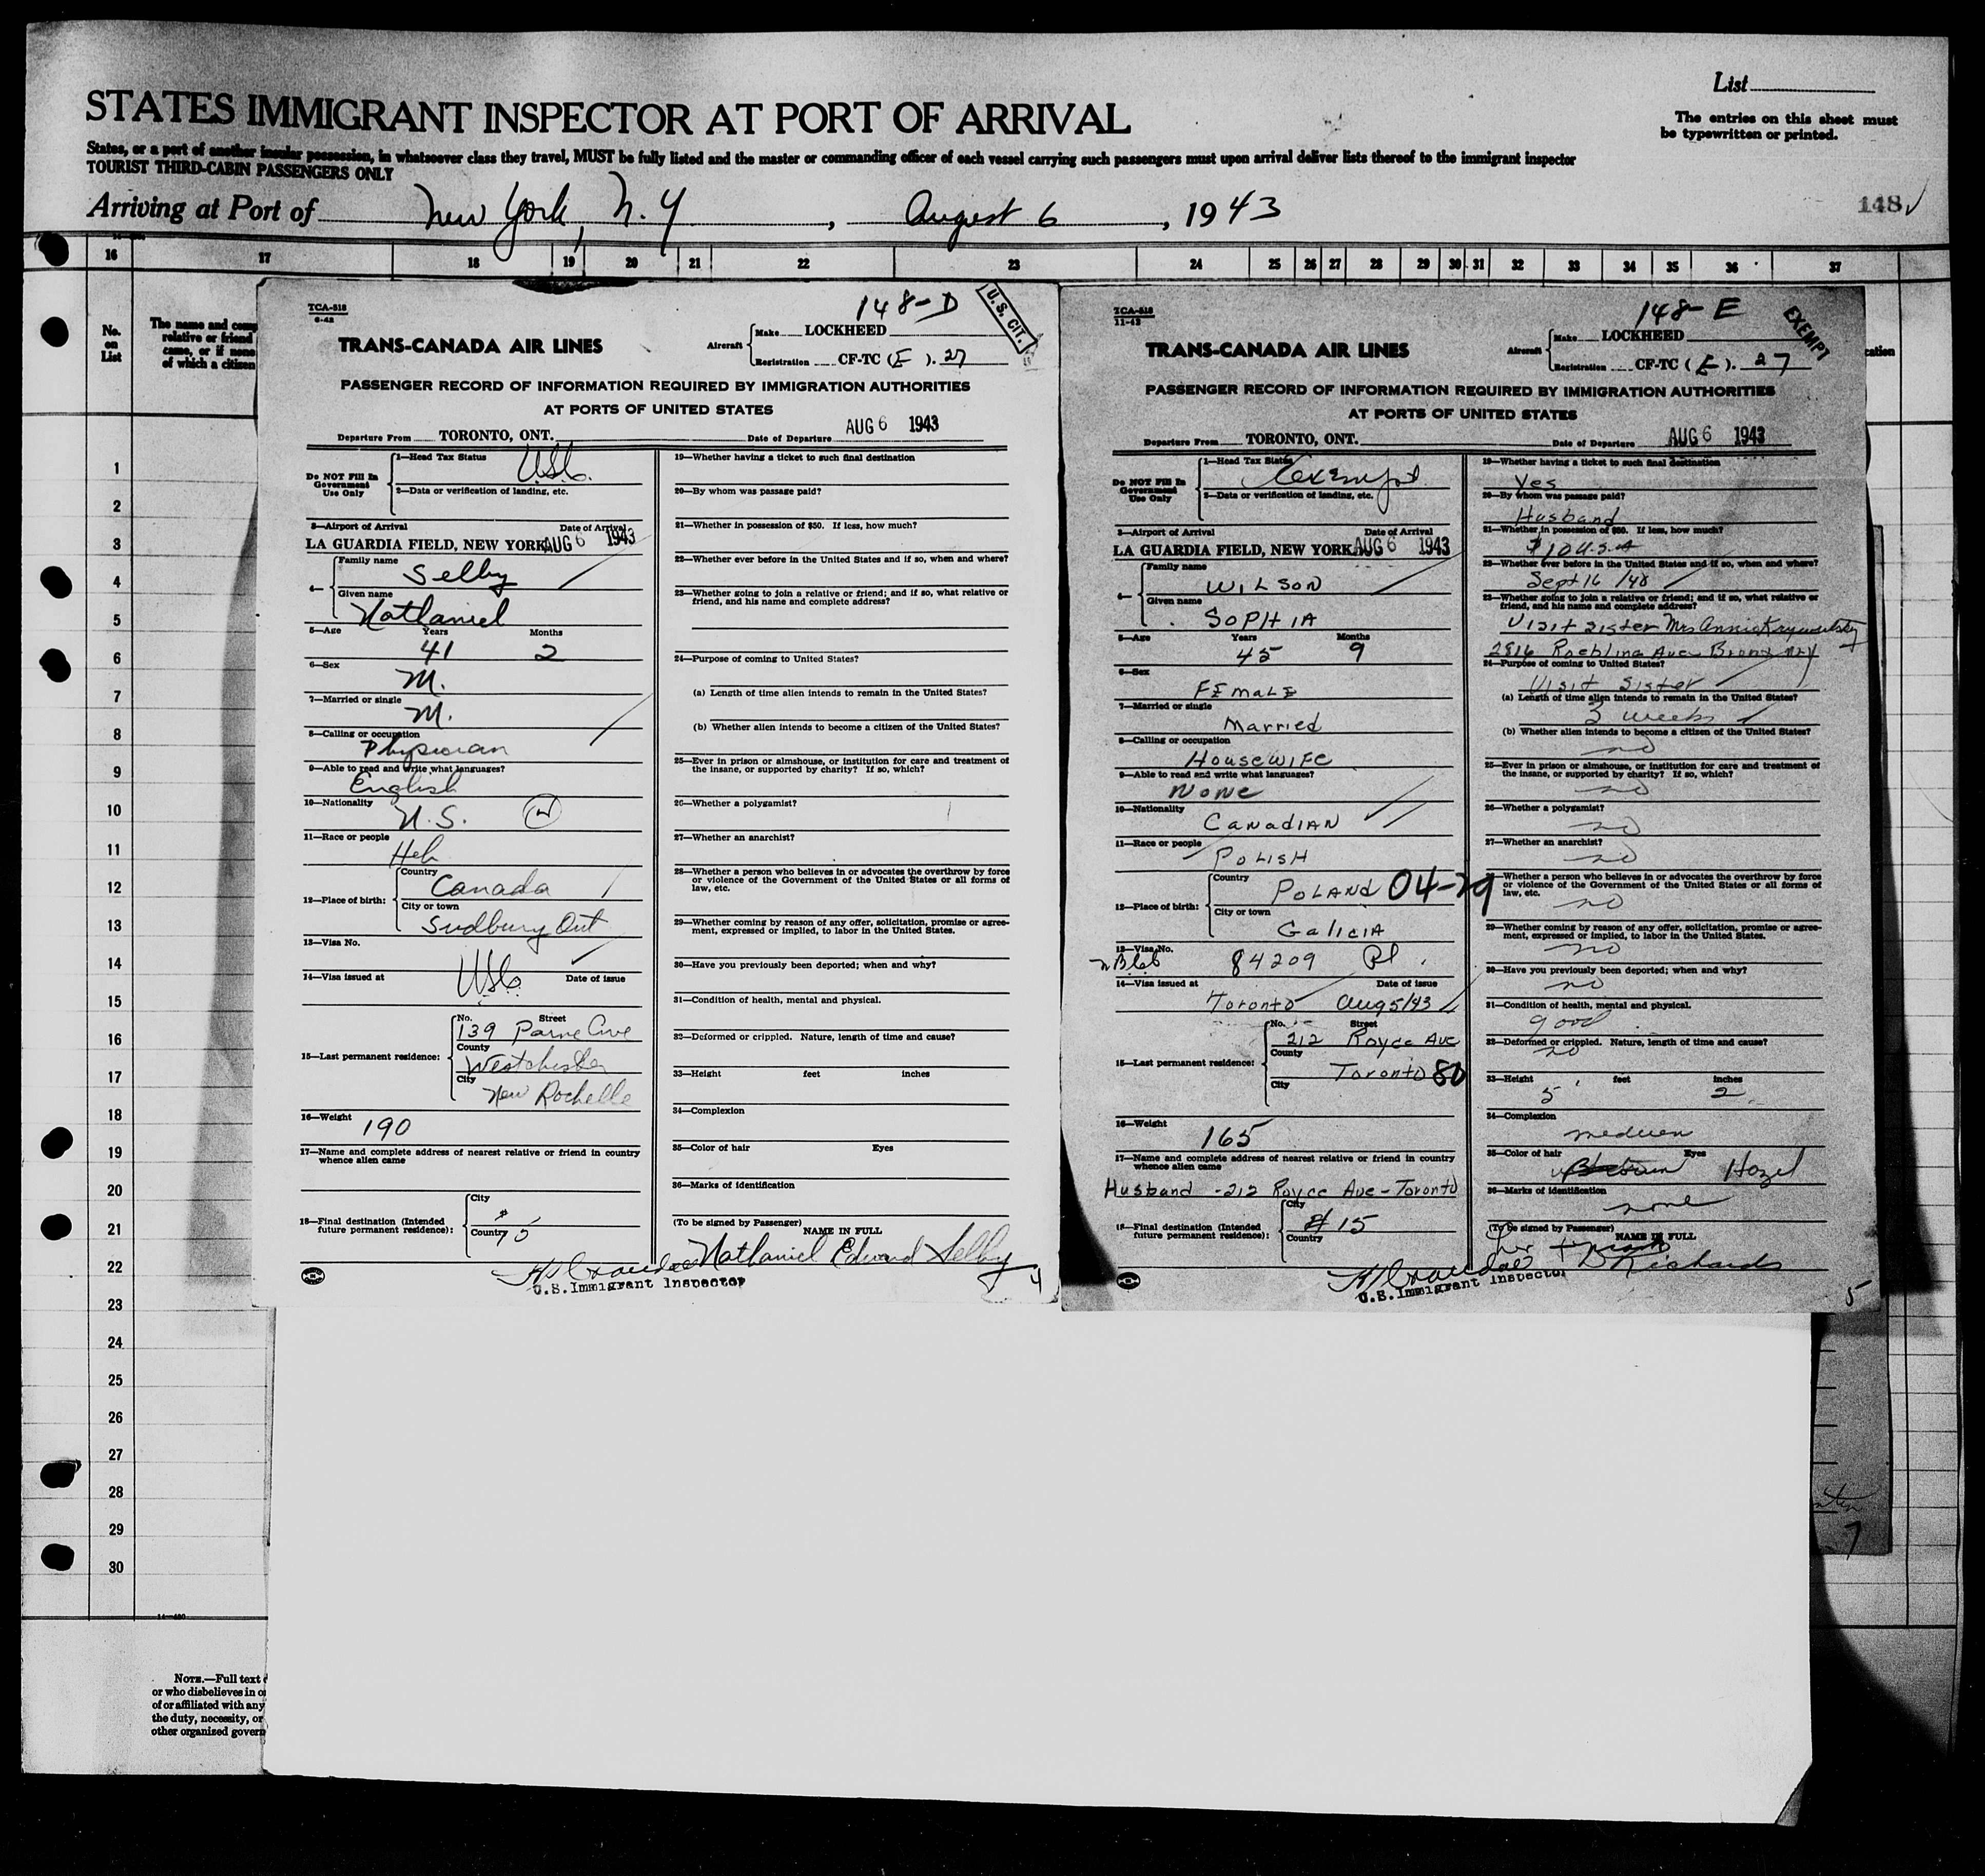 List
STATES IMMIGRANT INSPECTOR AT PORT OF ARRIVAL
The entries on this sheet must
be typewritten or printed.
States, or a port of another insular possession, in whatsoever class they travel, MUST be fully listed and the master or commanding officer of each vessel carrying such passengers must upon arrival deliver lists thereof to the immigrant inspector
TOURIST THIRD-CABIN PASSENGERS ONLY
Arriving at Port of New York, N.Y, August 6, 1943
148
16 17 18 19 20 21 22 23 24 25 26 27 28 29 30 31 32 33 34 35 36 37
No.
on
List
The name and comp
relative or friend
came, or if none
of which a citizen
1
2
3
4
5
6
7
8
9
10
11
12
13
14
15
16
17
18
19
20
21
22
23
24
25
26
27
28
29
30
14-480
NOTE.—Full text
or who disbelieves in o
of or affiliated with any
the duty, necessity, or
other organized govern
TCA-518
6-42
148-D
U.S. CIT.
TRANS-CANADA AIR LINES
Aircraft
Make LOCKHEED
Registration CF-TC (E). 27
PASSENGER RECORD OF INFORMATION REQUIRED BY IMMIGRATION AUTHORITIES
AT PORTS OF UNITED STATES
Departure From TORONTO, ONT. Date of Departure AUG 6 1943
Do NOT Fill In
Government
Use Only
1—Head Tax Status USC.
2—Data or verification of landing, etc.
3—Airport of Arrival Date of Arrival
LA GUARDIA FIELD, NEW YORK AUG 6 1943
4—
Family name
Selby
Given name
Nathaniel
5—Age Years Months
41 2
6—Sex
M.
7—Married or single
M.
8—Calling or occupation
Physician
9—Able to read and write what languages?
English
10—Nationality
U.S.
11—Race or people
Heb
12—Place of birth:
Country
Canada
City or town
Sudbury Ont
13—Visa No.
USC
14—Visa issued at Date of issue
15—Last permanent residence:
No. Street
139 Paine Ave
County
Westchester
City
New Rochelle
16—Weight
190
17—Name and complete address of nearest relative or friend in country
whence alien came
18—Final destination (Intended
future permanent residence):
City
Country
19—Whether having a ticket to such final destination
20—By whom was passage paid?
21—Whether in possession of $50. If less, how much?
22—Whether ever before in the United States and if so, when and where?
23—Whether going to join a relative or friend; and if so, what relative or
friend, and his name and complete address?
24—Purpose of coming to United States?
(a) Length of time alien intends to remain in the United States?
(b) Whether alien intends to become a citizen of the United States?
25—Ever in prison or almshouse, or institution for care and treatment of
the insane, or supported by charity? If so, which?
26—Whether a polygamist?
27—Whether an anarchist?
28—Whether a person who believes in or advocates the overthrow by force
or violence of the Government of the United States or all forms of
law, etc.
29—Whether coming by reason of any offer, solicitation, promise or agree-
ment, expressed or implied, to labor in the United States.
30—Have you previously been deported; when and why?
31—Condition of health, mental and physical.
32—Deformed or crippled. Nature, length of time and cause?
33—Height feet inches
34—Complexion
35—Color of hair Eyes
36—Marks of identification
(To be signed by Passenger) NAME IN FULL
Nathaniel Edward Selby
U.S. Immigrant Inspector
4
TCA-518
11-42
148-E
EXEMPT
TRANS-CANADA AIR LINES
Aircraft
Make LOCKHEED
Registration CF-TC (E). 27
PASSENGER RECORD OF INFORMATION REQUIRED BY IMMIGRATION AUTHORITIES
AT PORTS OF UNITED STATES
Departure From TORONTO, ONT. Date of Departure AUG 6 1943
Do NOT Fill In
Government
Use Only
1—Head Tax Status exempt
2—Data or verification of landing, etc.
3—Airport of Arrival Date of Arrival
LA GUARDIA FIELD, NEW YORK AUG 6 1943
4—
Family name
WILSON
Given name
SOPHIA
5—Age Years Months
45 9
6—Sex
FEMALE
7—Married or single
Married
8—Calling or occupation
HOUSEWIFE
9—Able to read and write what languages?
NONE
10—Nationality
CANADIAN
11—Race or people
POLISH
12—Place of birth:
Country
POLAND 04-29
City or town
GALICIA
13—Visa No.
84209
14—Visa issued at Date of issue
Toronto Aug 5/43
15—Last permanent residence:
No. Street
212 Royce Ave
County
Toronto 80
City
16—Weight
165
17—Name and complete address of nearest relative or friend in country
whence alien came
Husband - 212 Royce Ave - Toronto
18—Final destination (Intended
future permanent residence):
City
#15
Country
19—Whether having a ticket to such final destination
Yes
20—By whom was passage paid?
Husband
21—Whether in possession of $50. If less, how much?
$10 U.S.A
22—Whether ever before in the United States and if so, when and where?
Sept 16 /40
23—Whether going to join a relative or friend; and if so, what relative or
friend, and his name and complete address?
Visit sister Mrs Annie
2816 Roebling Ave Bronx NY
24—Purpose of coming to United States?
Visit Sister
(a) Length of time alien intends to remain in the United States?
3 weeks
(b) Whether alien intends to become a citizen of the United States?
no
25—Ever in prison or almshouse, or institution for care and treatment of
the insane, or supported by charity? If so, which?
no
26—Whether a polygamist?
no
27—Whether an anarchist?
no
28—Whether a person who believes in or advocates the overthrow by force
or violence of the Government of the United States or all forms of
law, etc.
no
29—Whether coming by reason of any offer, solicitation, promise or agree-
ment, expressed or implied, to labor in the United States.
no
30—Have you previously been deported; when and why?
no
31—Condition of health, mental and physical.
good
32—Deformed or crippled. Nature, length of time and cause?
no
33—Height feet inches
5 2
34—Complexion
medium
35—Color of hair Eyes
Brown Hazel
36—Marks of identification
none
(To be signed by Passenger) NAME IN FULL
her + mark
D Richards
U.S. Immigrant Inspector
5
7